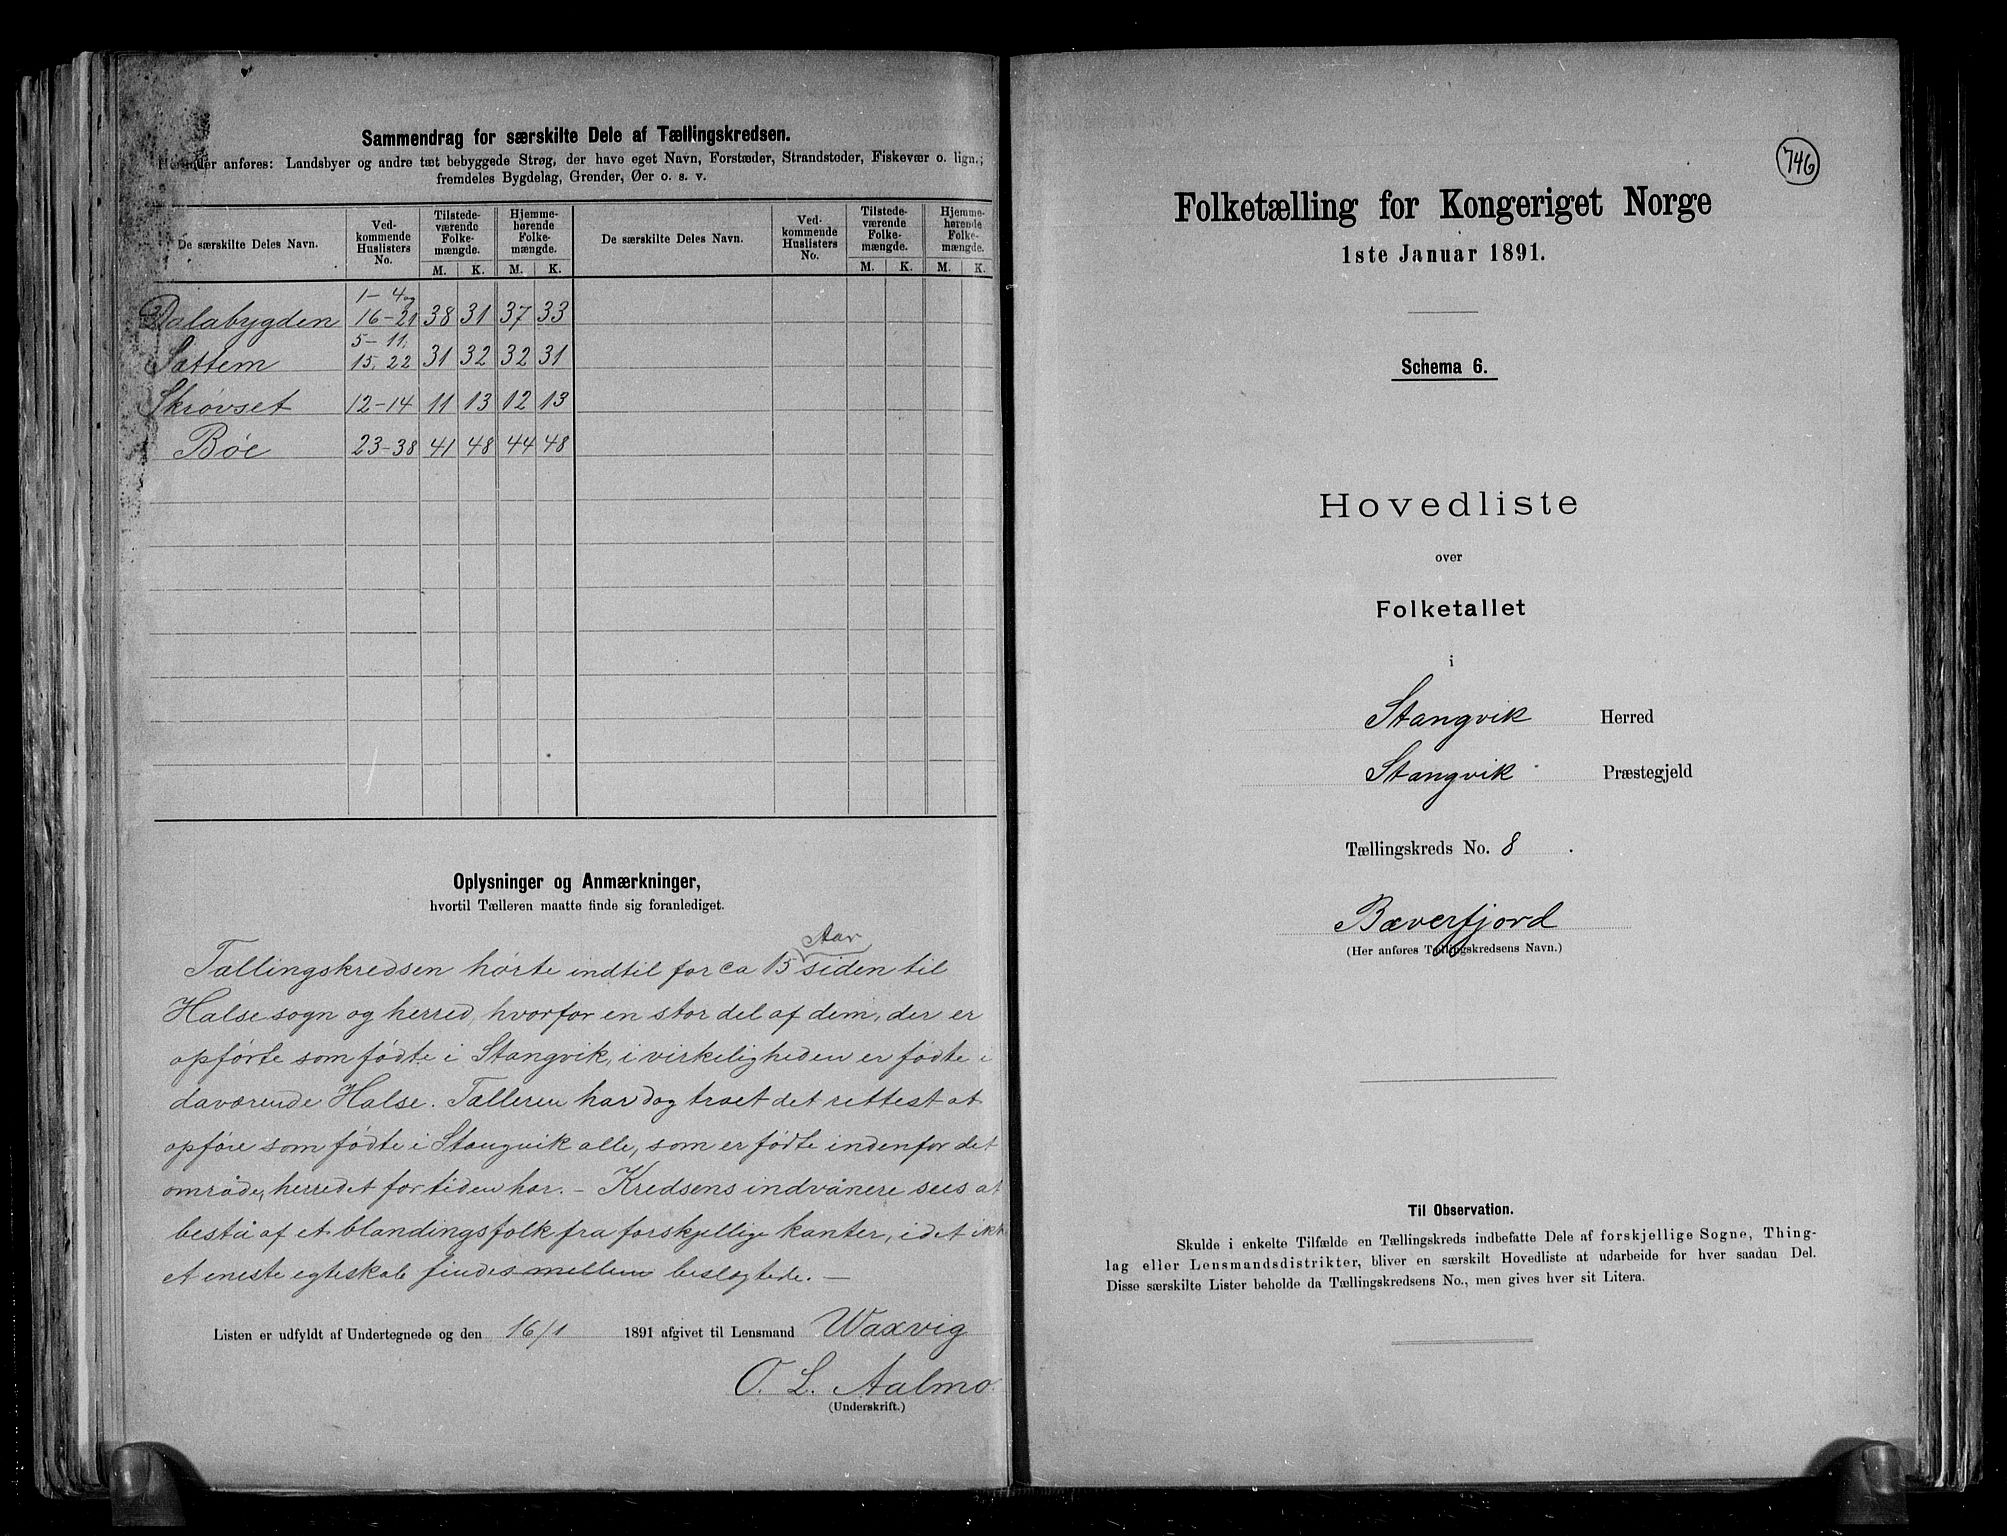 Sammendrag for særskilte Dele af Tællingskredsen.
Herunder anføres: Landsbyer og andre tæt bebyggede Strøg, der have eget Navn, Forstæder, Strandsteder, Fiskevær o. lign.;
fremdeles Bygdelag, Grender, Øer o. s. v.
De særskilte Deles Navn. Ved-kommende Huslisters No. Tilstede-værende Folke-mængde. Hjemme-hørende Folke-mængde. De særskilte Deles Navn. Ved-kommende Huslisters No. Tilstede-værende Folke-mængde. Hjemme-hørende Folke-mængde.
M. K. M. K. M. K. M. K.
Dalabygden 1-4 og 16-21 38 31 37 33
Sættem 5-11, 15, 22 31 32 32 31
Skrøvset 12-14 11 13 12 13
Bøe 23-38 41 48 44 48
Oplysninger og Anmærkninger,
hvortil Tælleren maatte finde sig foranlediget.
Aar
Tællingskredsen hørte indtil for ca 15 siden til
Halse sogn og herred, hvorfor en stor del af dem, der er
opførte som fødte i Stangvik, i virkeligheden er fødte i
daværende Halse. Tælleren har dog troet det rettest at
opføre som fødte i Stangvik alle, som er fødte indenfor det
område, herredet for tiden har. – Kredsens indvånere sees at
bestå af et blandingsfolk fra forskjellige kanter, idet ikke
et eneste egteskab findes mellem beslægtede. –
Listen er udfyldt af Undertegnede og den 16/1 1891 afgivet til Lensmand Waxvig
O. L. Aalmo
(Underskrift.)
746
Folketælling for Kongeriget Norge
1ste Januar 1891.
Schema 6.
Hovedliste
over
Folketallet
i
Stangvik Herred
Stangvik Præstegjeld
Tællingskreds No. 8.
Bæverfjord
(Her anføres Tællingskredsens Navn.)
Til Observation.
Skulde i enkelte Tilfælde en Tællingskreds indbefatte Dele af forskjellige Sogne, Thing-
lag eller Lensmandsdistrikter, bliver en særskilt Hovedliste at udarbeide for hver saadan Del.
Disse særskilte Lister beholde da Tællingskredsens No., men gives hver sit Litera.